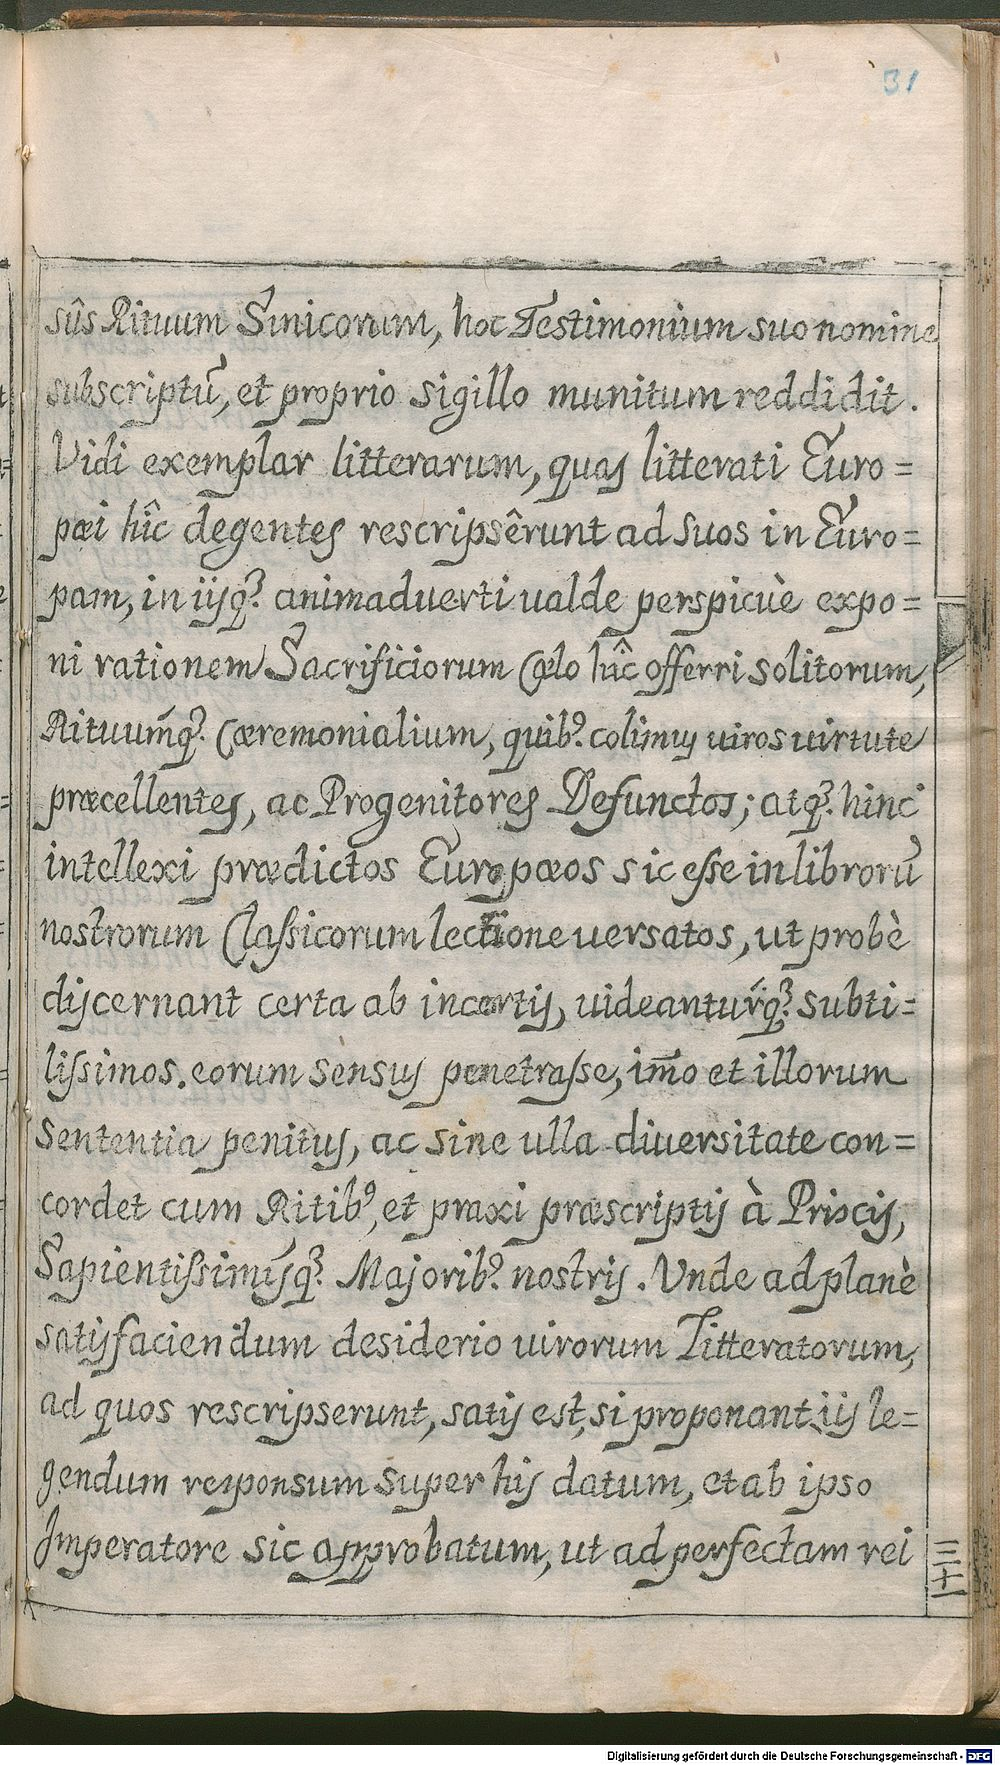 31
sûs Rituum Sinicorum, hoc Testimonium suo nomine
subscriptū, et proprio sigillo munitum reddidit.
Vidi exemplar litterarum, quas litterati Euro=
pæi hîc degentes rescripsêrunt ad suos in Euro=
pam, in iisq̃; animaduerti ualde perspicuè expo=
ni rationem Sacrificiorum Cœlo hîc offerri solitorum,
Rituum̃q; Cæremonialium, quib; colimus uiros uirtute
præcellentes, ac Progenitores Defunctos; atq; hinc
intellexi prædictos Europæos sic eſse in librorū
nostrorum Claſsicorum lectione uersatos, ut probè
discernant certa ab incertis, uideantur̃q; subti=
liſsimos eorum sensus penetraſse, im̃o et illorum
sententia penitus, ac sine ulla diuersitate con=
cordet cum Ritib9, et praxi præscriptis à Priscis,
Sapientiſsimis̃q; Majorib; nostris. Unde ad planè
satisfaciendum desiderio uirorum Litteratorum,
ad quos rescripserunt, satis est, si proponant iis le=
gendum responsum super his datum, et ab ipso
Imperatore sic approbatum, ut ad perfectam rei
三十一
Digitalisierung gefördert durch die Deutsche Forschungsgemeinschaft - DFG